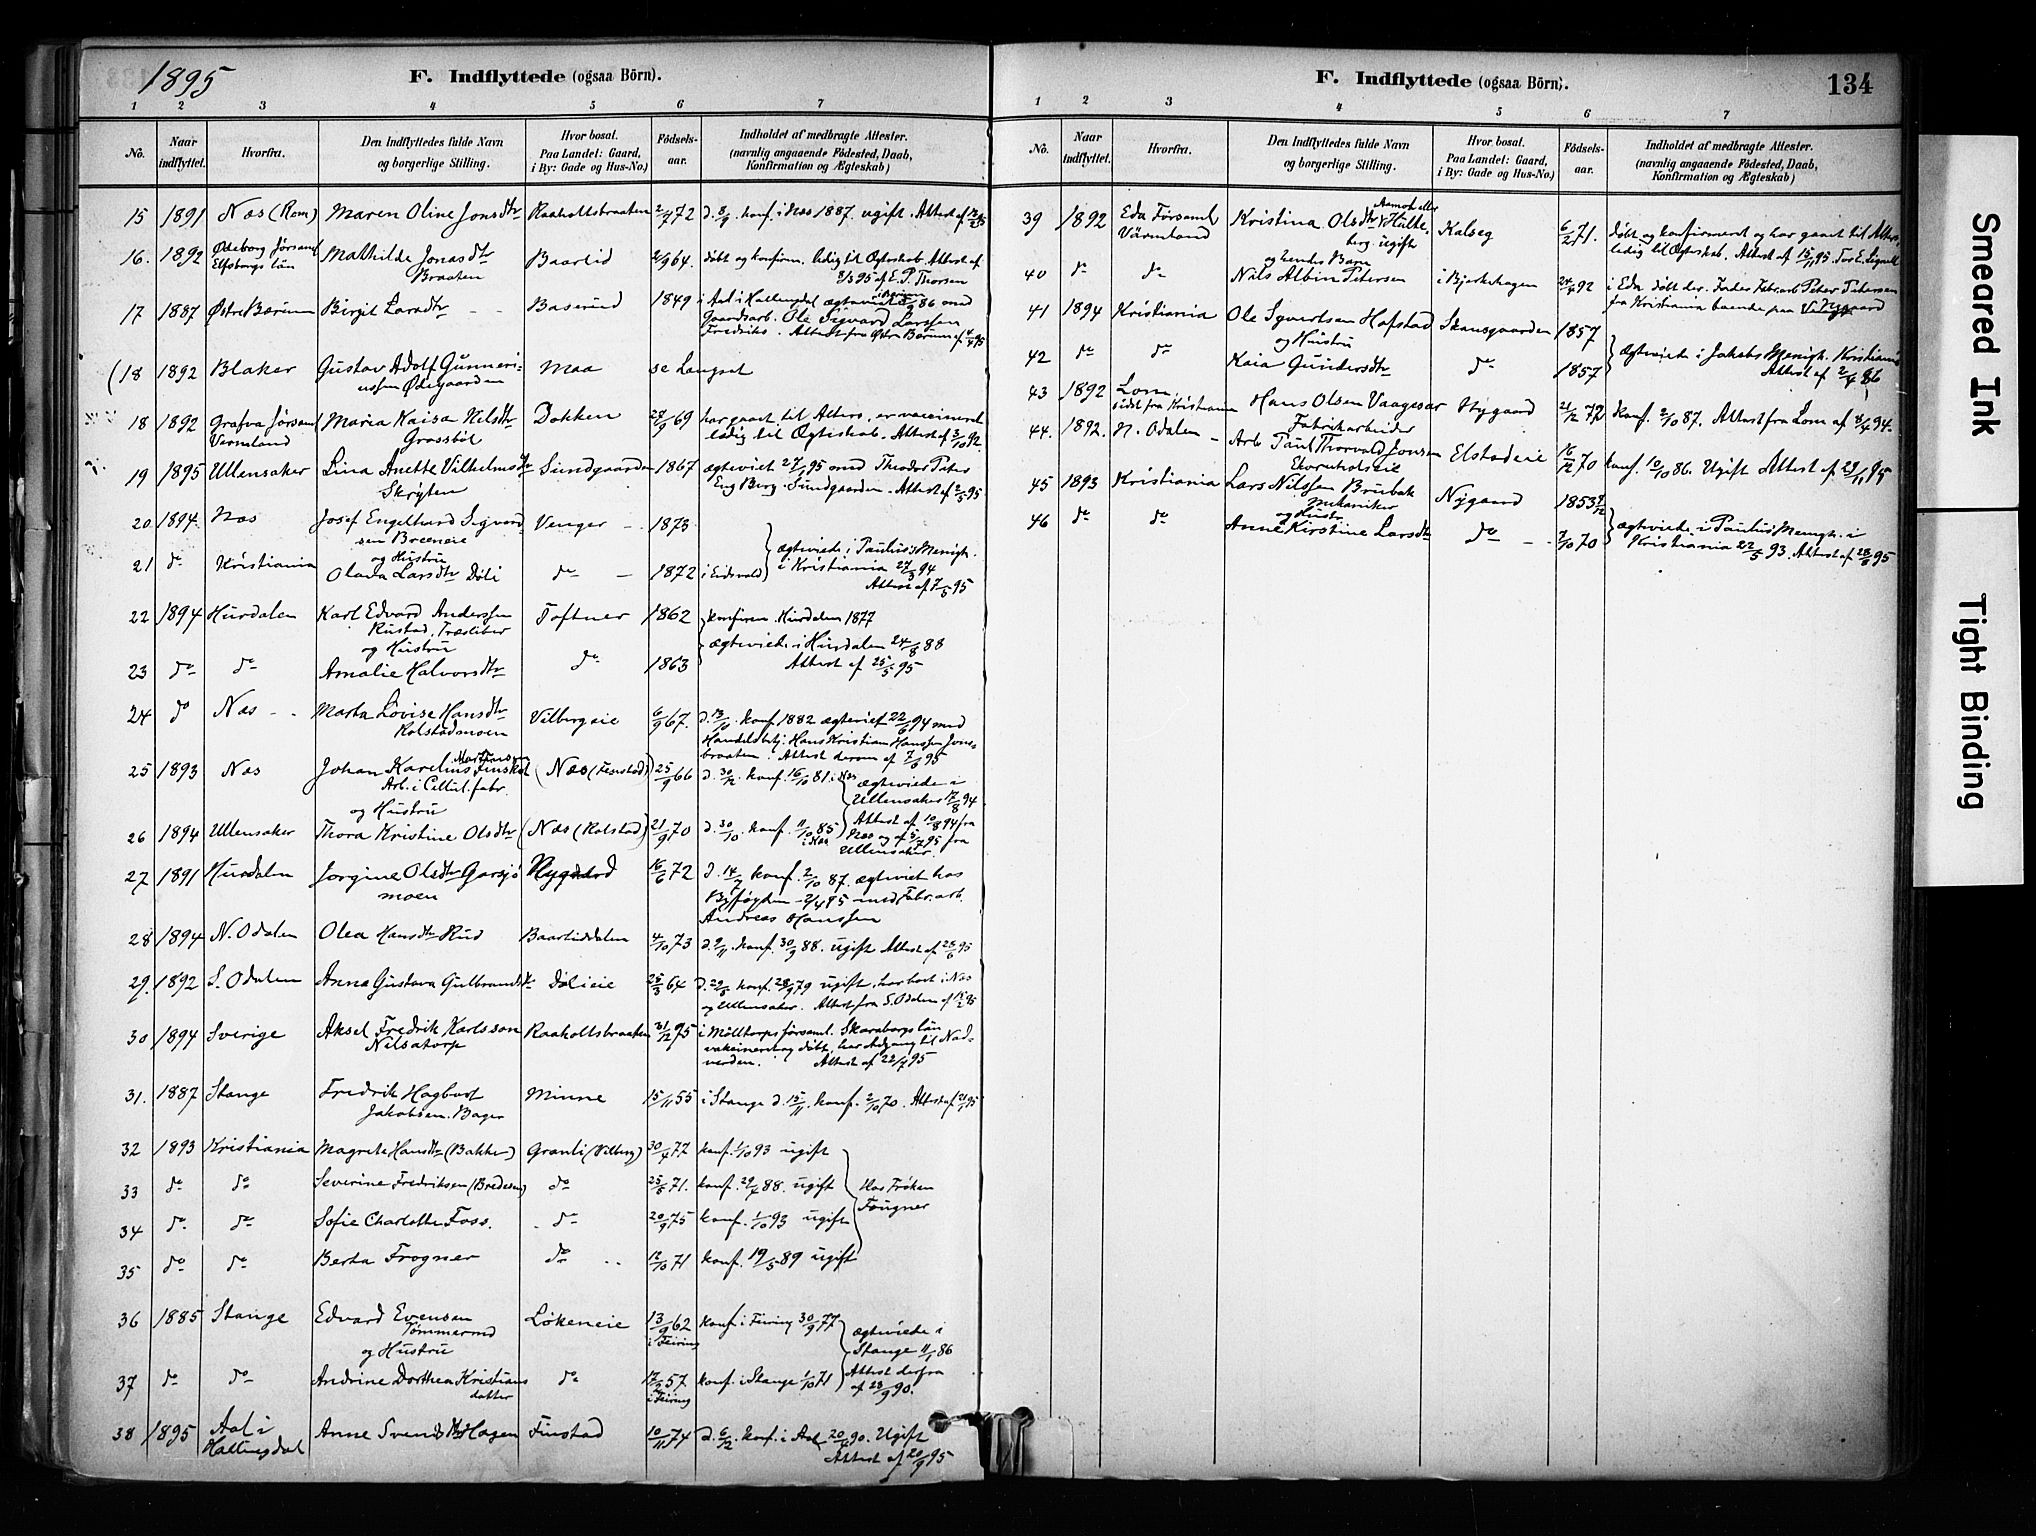 1895
F. Indflyttede (ogsaa Börn).
1 2 3 4 5 6 7
No. Naar indflyttet. Hvorfra. Den Indflyttedes fulde Navn og borgerlige Stilling. Hvor bosat. Paa Landet: Gaard, i By: Gade og Hus-No.) Födsels-aar. Indholdet af medbragte Attester. (navnlig angaaende Födested, Daab, Konfirmation og Ægteskab)
15 1891 Næs (Rom) Maren Oline Jonsdtr Raaholtsbraaten 2/7 72 d. 8/9 konf. i Næs 1887. ugift. Attest af
16. 1892 Ødeborg Førsaml Mathilde Jonasdtr Baarlid 64. døbt og konfirm. ledig til Ægteskab. Attest af
Elfsborgs län Braaten 95 af E. P. Thorsen
17 1887 Østre Bærum Birgit Larsdtr Baserud 1849 i Aal i Hallingdal ægteviet 86 med
Gaardsarb. Ole Sigvard Larssen
Fredriks. Attest fra Østre Bærum af 95
(18 1892 Blaker Gustav Adolf Gunneri- Maa se Langset
ussen Ødegaarden
18 1892 Grafva Førsaml Maria Kaisa Nilsdtr Dokken 28/9 69 har gaaet til Alters, er vaccineret
Vermland Grossbøl ledig til Ægteskab. Attest af 3/10 92
19 1895 Ullensaker Lina Anette Vilhelmsdtr Sundgaarden 1867 ægteviet 27/1 95 med Theodor Peter
Skryten Eng Berg. Sundgaarden. Attest af 2/5 95
20 1894. Næs Josef Engelhard Sigvard- Venger 1873
sen Breeneie
og Hustru
21 do Kristiania Olava Larsdtr Døli do 1872 i Eidsvold
ægteviede i Paulus Menigh.
i Kristiania 27/3 94
Attest af 7/5 95
22 1894 Hurdalen Karl Edvard Anderssen Toftner 1862 konfirm. Hurdalen 1877
Rustad. Træsliber
og Hustru
ægteviede i Hurdalen 24/8 88
23 do do Amalie Halvorsdtr do 1863 Attest af 25/5 95
24 do Næs Marta Lovise Hansdtr Vilbergeie 6/9 67. d. 13/10 konf. 1882 ægteviet 22/6 94 med
Rolstadmoen Handelsbetj. Hans Kristian Hanssen Jons-
braaten. Attest derom af 7/6 95
25 1893 Næs Johan Karelius Finstad (Næs (Fenstad) 25/9 66 d. 30/12 konf. 16/10 81 i Næs
Arb. i Cellul. fabr.
og Hustru
ægteviede i
Ullensaker 17/8 94
26 1894 Ullensaker Thora Kristine Olsdtr (Næs (Rolstad) 21/9 70 d. 30/10. konf. 11/10 85 i Næs
Attest af 10/8 94 fra
Næs og af 5/7 95 fra
Ullensaker.
27 1891 Hurdalen Jorgine Olsdtr Garsjø Nygaard 16/6 72 d. 14/7 konf. 2/10 87. ægteviet hos
moen Byfogden 2/4 95 med Fabr. arb.
Andreas Hanssen
28 1894 N. Odalen Olea Hansdtr Rud Baarliddalen 4/10 73 d. 9/11. konf. 30/9 88. ugift Attest af 28/6 95
29. 1892 S. Odalen Anna Gustava Gulbrandsdtr Dølieie 25/3 64 d. 29/5 konf. 28/9 79 ugift, har boet i Næs
og Ullensaker. Attest fra S. Odalen af 95
30 1894 Sverige Aksel Fredrik Karlsson Raaholtsbraaten 31/12 75 i Mölltorps församl. Skaraborgs län
Nilsatorp vakcineret og døbt, har Adgang til Nad-
verden. Attest af 22/7 95
31. 1887 Stange Fredrik Hagbart Minne 15/11 55 i Stange d. 15/11. konf. 2/10 70. Attest af 95
Jakobsen. Bager
32 1893 Kristiania Magrete Hansdtr (Bakke) Granli (Vilberg) 30/4 77 konf. 1/10 93 ugift
33 do do Severine Fredriksen (Bredesen) do 25/5 71. konf. 29/4 88. ugift Hos Frøken
34 do. do Sofie Charlotte Foss. do 20/9 75 konf. 1/10 93 ugift Fougner
35 do do Berta Frogner do 12/10 71 konf. 19/5 89 ugift
36 1885 Stange Edvard Evensen Løkeneie 13/9 62 konf. i Feiring 30/9 77
Tømmermd i Feiring
og Hustru
ægteviede i
Stange 11/1 86
37 do do Andrine Dorthea Kristians do 57 konf. i Stange 1/10 71 Attest derfra
datter i Feiring af 23/9 90.
38 1895 Aal i Anne Svensdtr Hagen Finstad 10/11 74 d. 6/12. konf. i Aal 20/4 90. Ugift
Hallingdal Attest af 20/9 95
F. Indflyttede (ogsaa Börn).
134
1 2 3 4 5 6 7
No. Naar indflyttet. Hvorfra. Den Indflyttedes fulde Navn og borgerlige Stilling. Hvor bosat. Paa Landet: Gaard, i By: Gade og Hus-No.) Födsels-aar. Indholdet af medbragte Attester. (navnlig angaaende Födested, Daab, Konfirmation og Ægteskab)
39 1892 Eda Førsaml Kristina Olsdtr Aamot eller Hulte- Kalseg 6/2 71. døbt og konfirmeret og har gaaet til Alters
Värmland berg ugift ledig til Ægteskab. Attest af 15/11 95.
og hendes Barn
40 do do Nils Albin Petersen i Bjerkehagen 24/4 92 i Eda døbt der. Fader Fabr.arb Peter Petersen
fra Kristiania boende paa Nygaard
41 1894 Kristiania Ole Syvertsen Hafstad Skansgaarden 1857
og Hustru
42 do do Kaia Gundersdtr do 1857 ægteviede i Jakobs Menigh. Kristiania
Attest af 2/4 86
43 1892 Lom Hans Olsen Vaagesar Nygaard 21/12 72 konf. 2/10 87. Attest fra Lom af 8/4 94.
sidst fra Kristiania Fabrikarbeider
44. 1892. N. Odalen Arb Paul Thorvald Jonsen Elstadeie 16/12 70 konf. 10/10 86. Ugift Attest af 23/11 95
Ekornholseie
45 1893 Kristiania Lars Nilssen Brubak Nygaard 1853
Mekaniker
og Hustr
46 do do Anne Kirstine Larsdtr do 7/10 70 ægteviede i Paulus Menigh. i
Kristiania 22/5 93. Attest af 28/6 95
Smeared Ink
Tight Binding